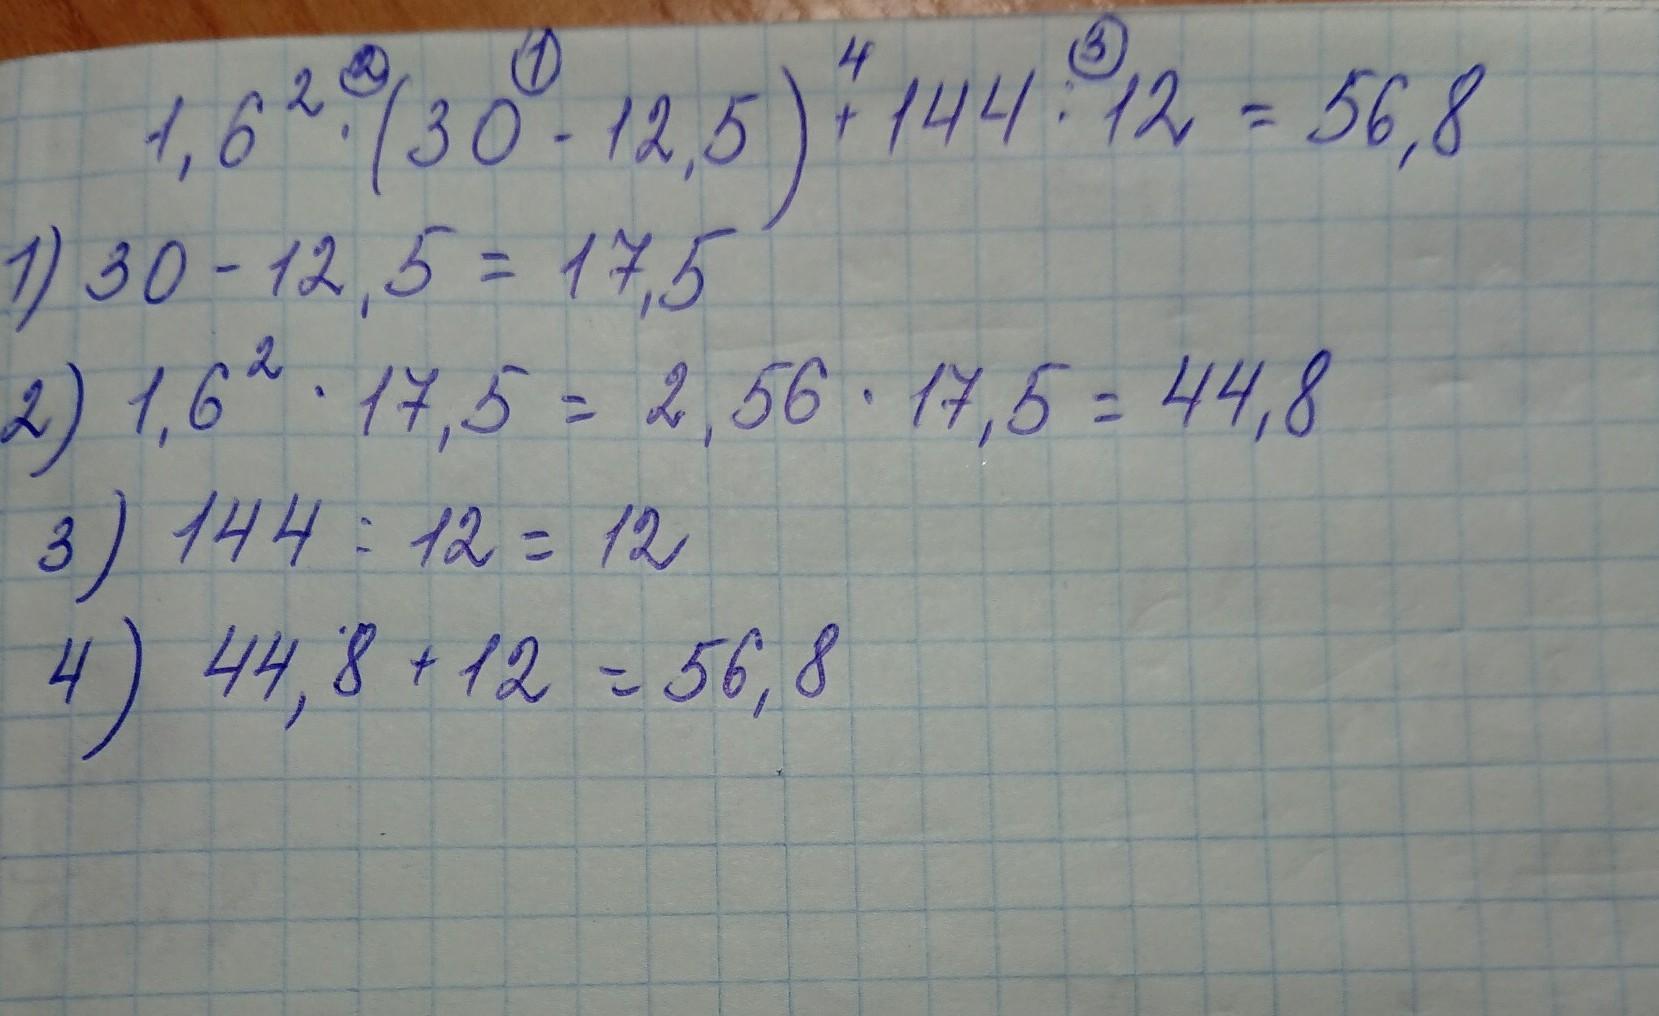 1,6² · (30 - 12,5) + 144 : 12 = 56,8
1) 30 - 12,5 = 17,5
2) 1,6² · 17,5 = 2,56 · 17,5 = 44,8
3) 144 : 12 = 12
4) 44,8 + 12 = 56,8